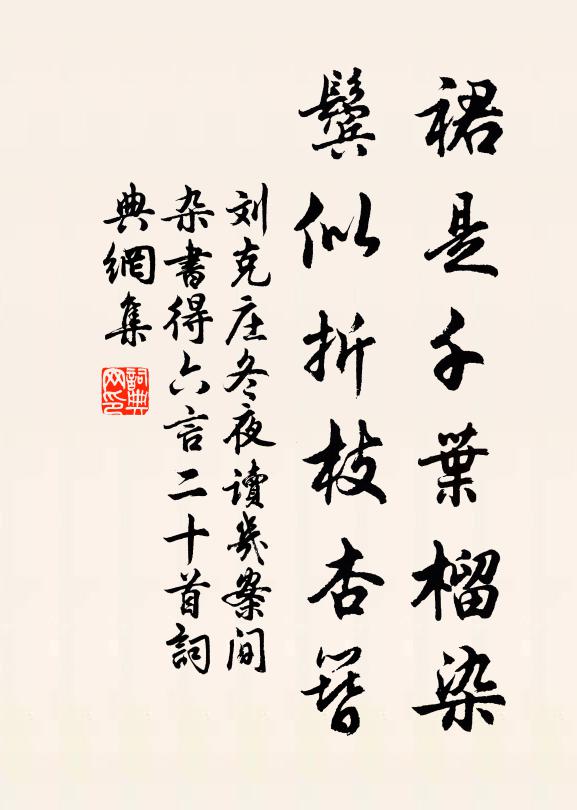 裙是千葉榴染
鬢似折枝杏簪
刘克庄冬夜讀几案间
杂書得六言二十首詞
典網集
詞典网印